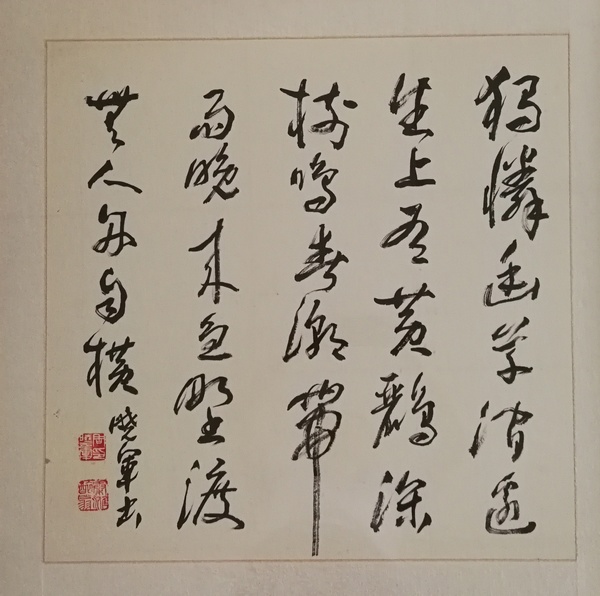 獨憐幽草澗邊
生上有黄鸝深
樹鳴春潮帶
雨晚来急野渡
無人舟自横
曉軍书